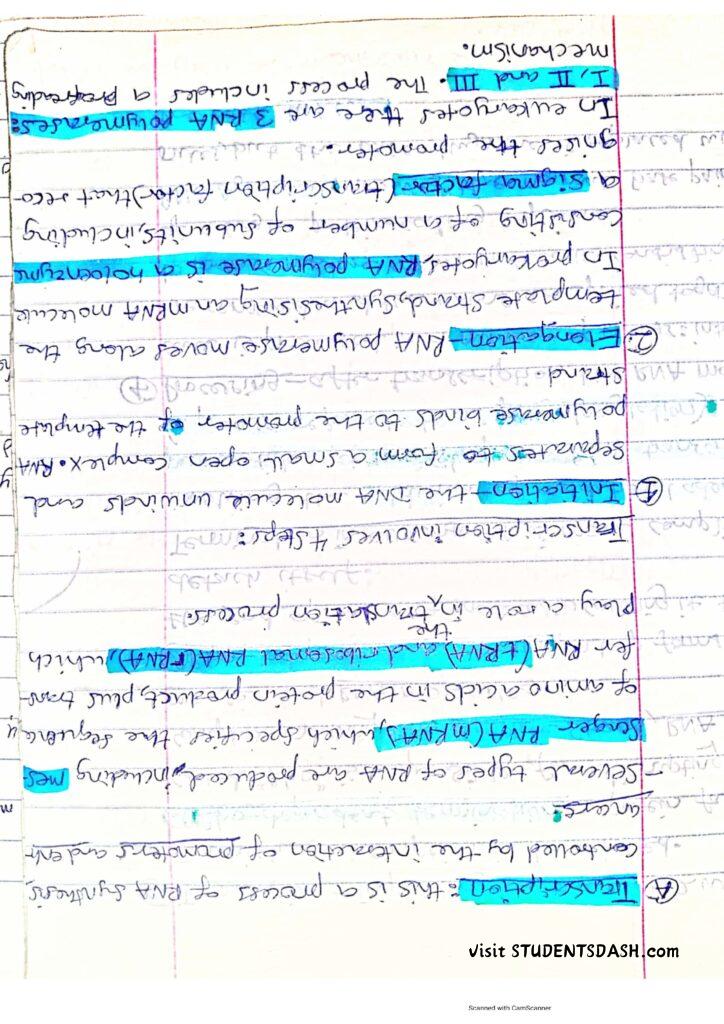 Ⓐ Transcription: this is a process of RNA synthesis,
controlled by the interaction of promoters and enh-
ancers.
- Several types of RNA are produced, including mes-
senger RNA (mRNA), which specifies the sequence
of amino acids in the protein product, plus trans-
fer RNA (tRNA) and ribosomal RNA (rRNA), which
play a role in the translation process.
Transcription involves 4 steps:
① Initiation - the DNA molecule unwinds and
separates to form a small open complex. RNA
polymerase binds to the promoter of the template
strand.
② Elongation - RNA polymerase moves along the
template strand, synthesising an mRNA molecule
In prokaryotes, RNA polymerase is a holoenzyme
consisting of a number of subunits, including
a sigma factor (transcription factor) that reco-
gnises the promoter.
In eukaryotes there are 3 RNA polymerases:
I, II and III. The process includes a proofreading
mechanism.
visit STUDENTSDASH.com
Scanned with CamScanner